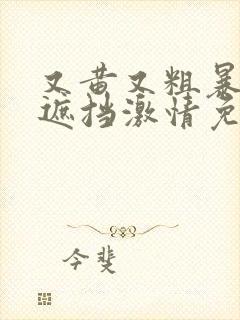 又黄又粗暴
遮挡激情免
今斐